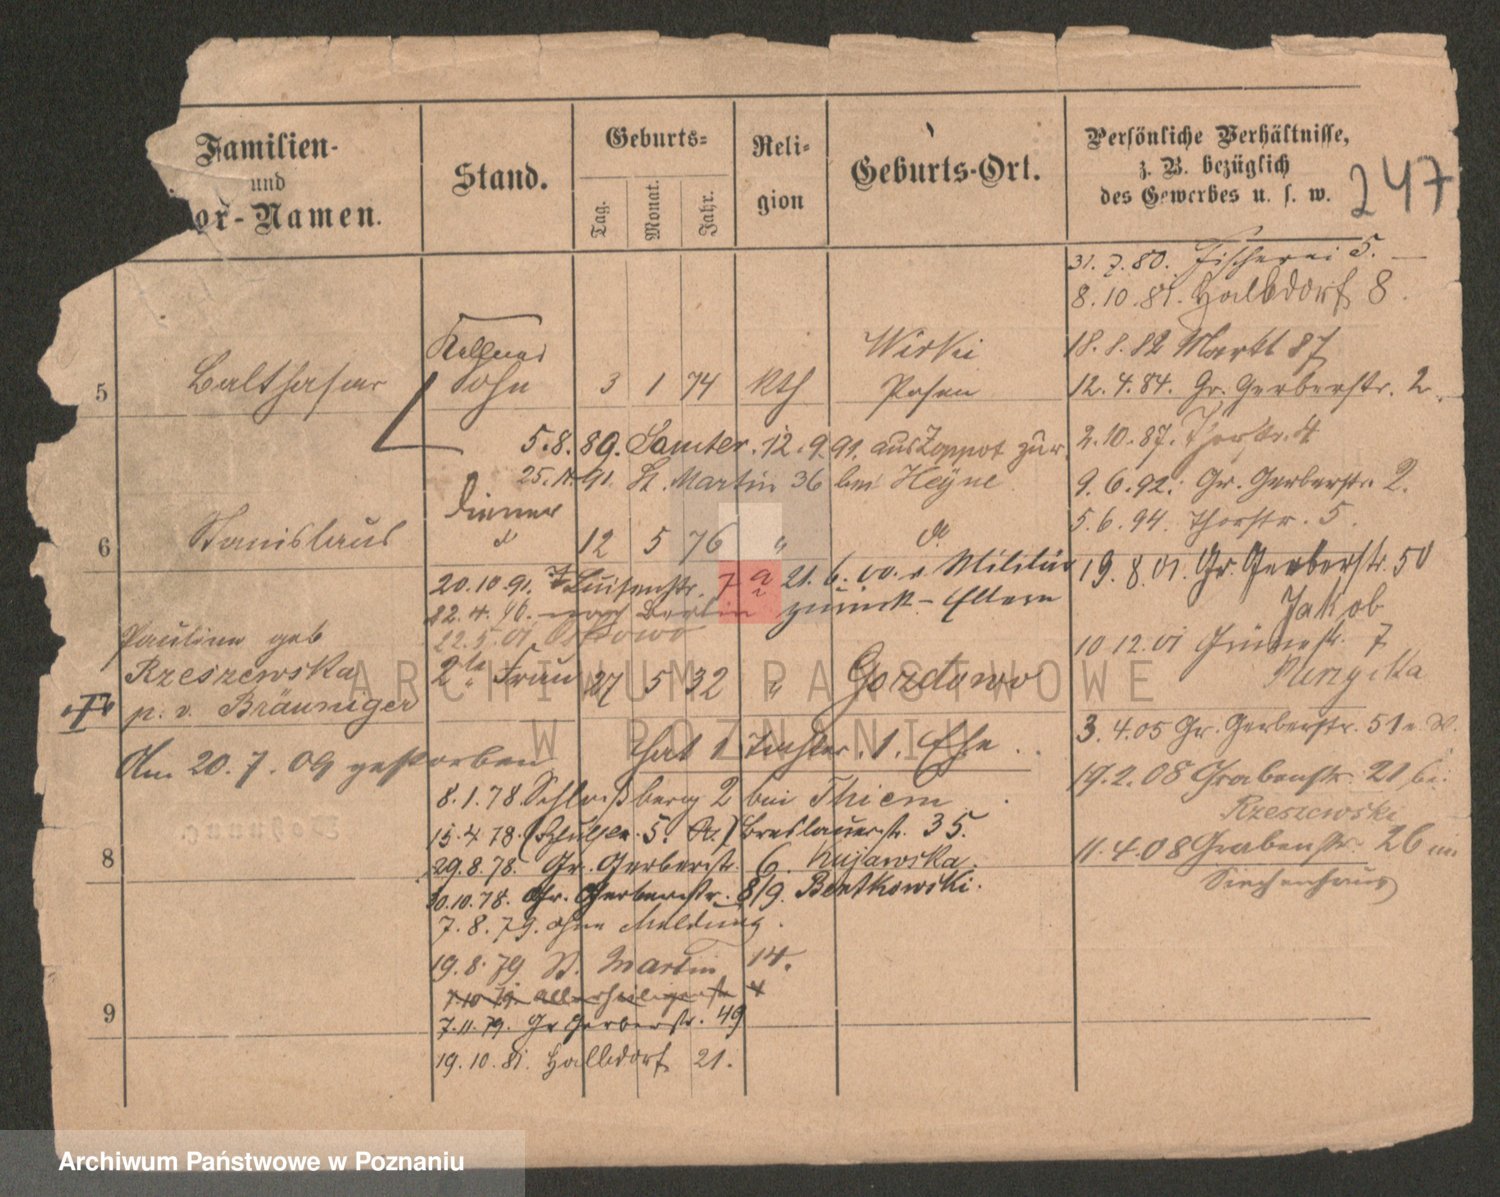 Familien-
und
or-Namen.
Stand.
Geburts-
Tag.
Monat.
Jahr.
Reli-
gion
Geburts-Ort.
Persönliche Verhältnisse,
z. B. bezüglich
des Gewerbes u. s. w.
247
31.7.80. Fischerei 5.
8.10.81. Halbdorf 8.
18.8.82 Markt 87
12.4.84. Gr. Gerberstr. 2.
2.10.87. Thorstr. 4
9.6.92. Gr. Gerberstr. 2.
5.6.94. Thorstr. 5.
19.8.01. Gr. Gerberstr. 50
Jakob
10 12.01 Grünestr. 7
3.4.05 Gr. Gerberstr. 51
19.2.08 Grabenstr. 21 bei
Rzeszewski
11.4.08 Grabenstr. 26 im
Siechenhaus
5 Balthasar Kellner
Sohn 3 1 74 kth Posen
5.8.89. Samter. 12.9.91. aus Zoppot zur.
St. Martin 36 bei Heyne
Diener
6 Stanislaus 12 5 76 "
20.10.91. Luisenstr. 7 21.6.00. v. Militär
22.4.96. nach Berlin zurück - Eltern
22.5.01 Ostrowo
Pauline geb
Rzeszewska
p. v. Bräuniger
2te Frau 27 5 32 " Gozdowo
Am 20.7.09 gestorben
hat 1 Tochter. 1. Ehe.
8.1.78 Schloßberg 2 bei Thiem
15.4.78. 5. Breslauerstr. 35.
8
29.8.78. Gr. Gerberstr. 6. Kujawska.
30.10.78. Gr. Gerberstr. 8/9. Bentkowski.
7.8.79. ohne Meldung.
19.8.79 St. Martin 14.
7.10.79. Allerheiligenstr 4
9
7.11.79. Gr Gerberstr. 49
19.10.81. Halbdorf 21.
ARCHIWUM PAŃSTWOWE
W POZNANIU
Archiwum Państwowe w Poznaniu